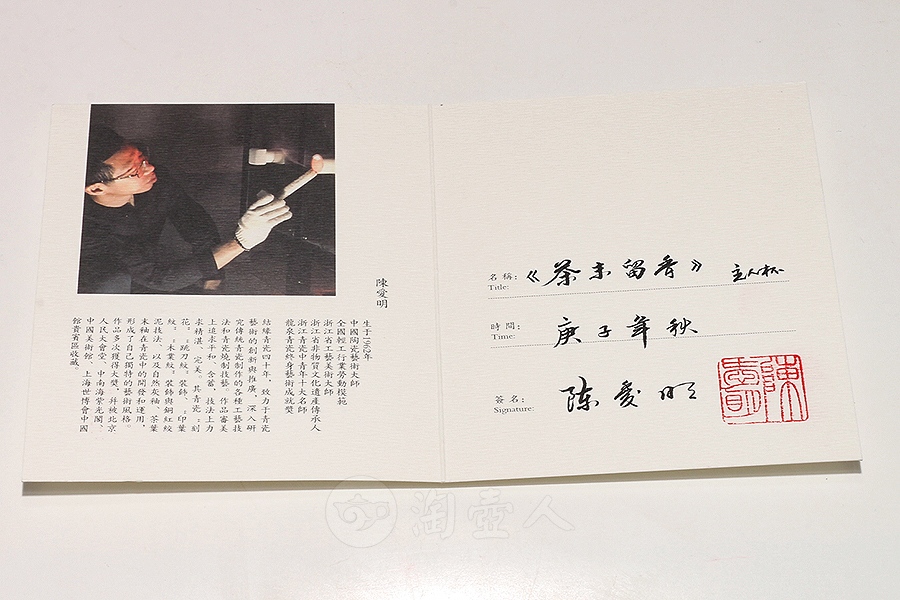 陳愛明
生于1962年
中國陶瓷藝術大師
全國輕工行業勞動模範
浙江省工藝美術大師
浙江省非物質文化遺產傳承人
浙江青瓷中青年十大名師
龍泉青瓷終身藝術成就獎
結緣青瓷四十年，致力于青瓷
藝術的創新與推廣，深入研
究傳統青瓷制作的各種工藝技
法和青瓷燒制技藝。作品審美
上追求平和、含蓄，技法上力
求精湛、完美。其青瓷：刻
花。：跳刀紋。裝飾、印葉
紋。：木葉紋。裝飾與銅紅紋
泥技法、以及自然灰釉、茶葉
末釉在青瓷中的開發和運用，
形成了自己獨特的藝術風格。
作品多次獲得大獎，并被北京
人民大會堂、中南海紫光閣、
中國美術館、上海世博會中國
館貴賓區收藏。
名稱：《茶末留香》 主人杯
Title:
時間： 庚子年秋
Time:
簽名： 陈愛明
Signature:
陳愛明
淘壺人